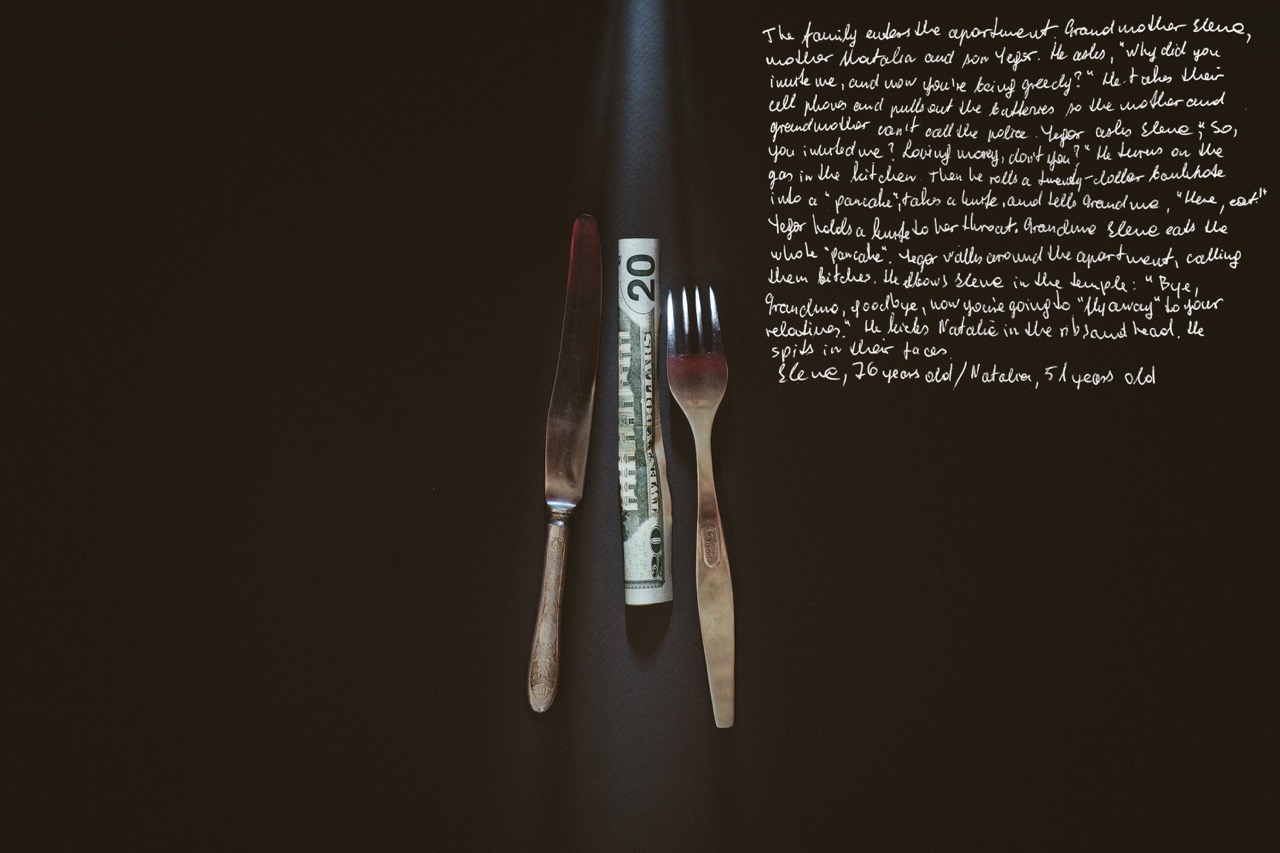 The family enters the apartment. Grandmother Elena,
mother Natalia and son Yegor. He asks, "Why did you
invite me, and now you're being greedy?" He takes their
cell phones and pulls out the batteries so the mother and
grandmother can't call the police. Yegor asks Elena: "So,
you invited me? Loving money, don't you?" He turns on the
gas in the kitchen. Then he rolls a twenty-dollar banknote
into a "pancake", takes a knife, and tells Grandma, "Here, eat!"
Yegor holds a knife to her throat. Grandma Elena eats the
whole "pancake". Yegor walks around the apartment, calling
them bitches. He elbows Elena in the temple: "Bye,
Grandma, goodbye, now you're going to "fly away" to your
relatives." He kicks Natalia in the ribs and head. He
spits in their faces.
Elena, 76 years old/Natalia, 51 years old
20
TWENTY DOLLARS
20